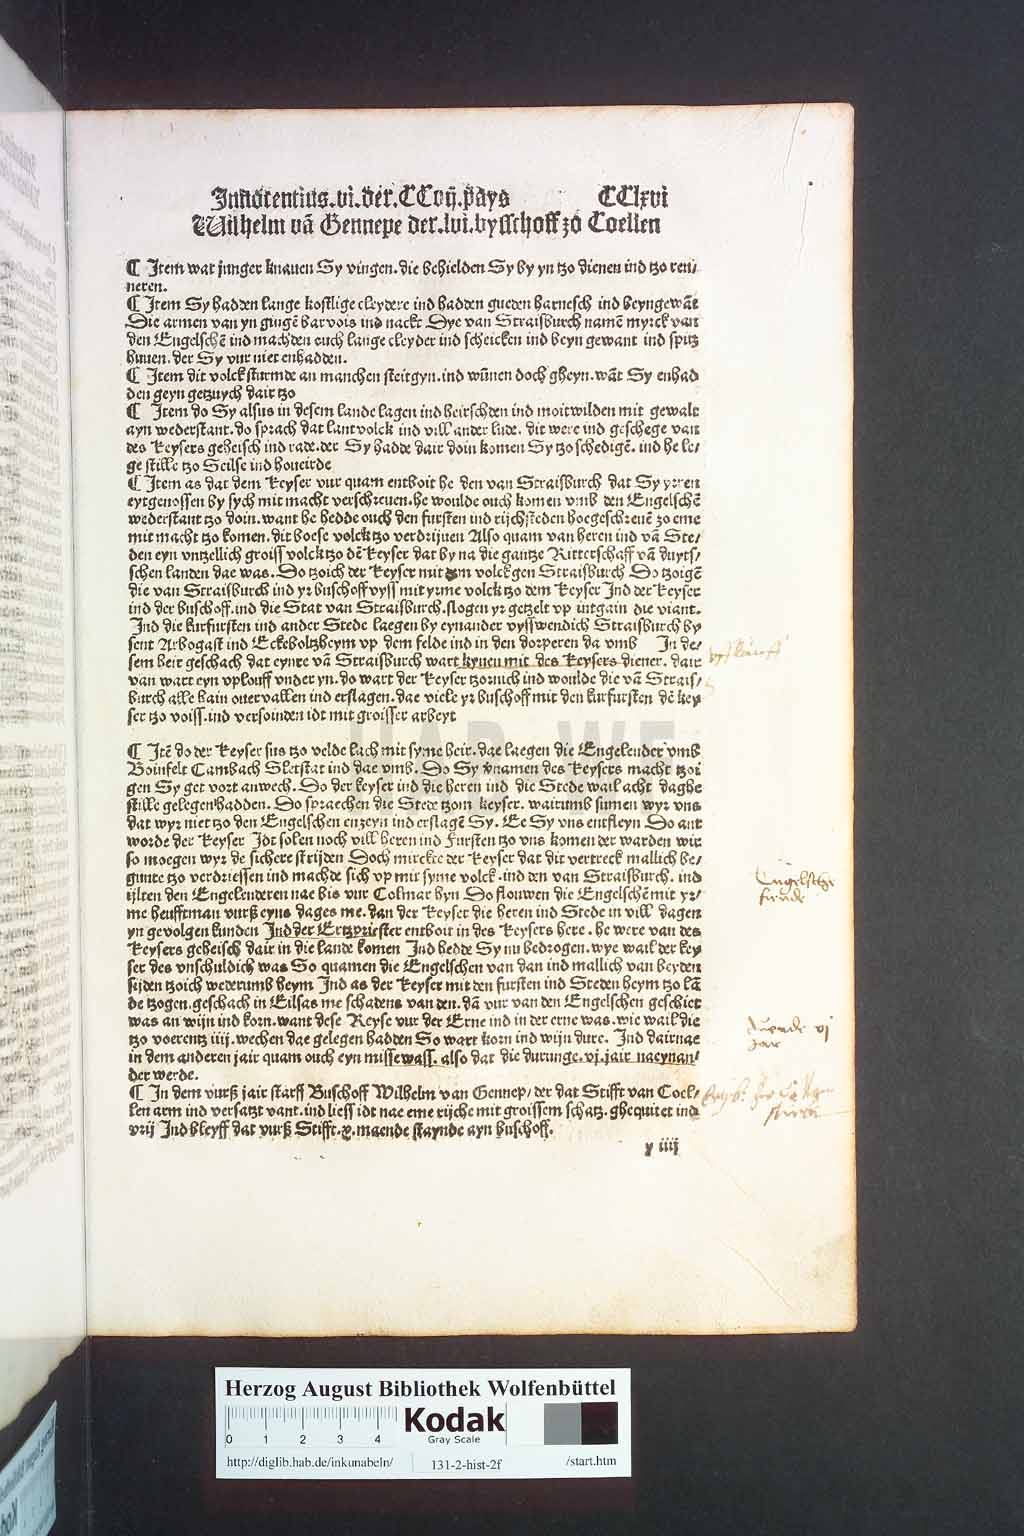 Innocentius.vi.der.CCvij.pays CClxvi
Wilhelm vā Gennepe der.lvi.bysschoff zo Coellen
¶ Item wat junger knauen Sy vingen.die behielden Sy by yn tzo dienen ind tzo ren/
neren.
¶ Item Sy hadden lange kostlige cleydere ind hadden gueden harnesch ind beyngewāt
Die armen van yn gingē barvois ind nackt Dye van Straisburch namē myrck van
den Engelschē ind machden ouch lange cleyder ind scheicken ind beyn gewant ind spitz
huuen.der Sy vur niet enhadden.
¶ Item dit volck sturmde an manchen steitgyn.ind wūnen doch gheyn.wāt Sy enhad
den geyn getzuych dair tzo
¶ Item do Sy alsus in desem lande lagen ind heirschden ind moitwilden mit gewalt
ayn wederstant.do sprach dat lantvolck ind vill ander lude. dit were ind geschege van
des Keysers geheisch ind rade.der Sy hadde dair doin komen Sy tzo schedigē. ind he le/
ge stille tzo Seilse ind houeirde
¶ Item as dat dem Keyser vur quam entboit he den van Straisburch dat Sy yrren
eytgenossen by sych mit macht verschreuen.he woulde ouch komen vmb den Engelschē
wederstant tzo doin.want he hedde ouch den fursten ind rijchsteden hoegeschreuē zo eme
mit macht tzo komen.dit boese volck tzo verdrijuen Also quam van heren ind vā Ste/
den eyn vntzellich groiss volck tzo dē Keyser dat by na die gantze Ritterschaff vā duyts/
schen landen dae was. Do tzoich der Keyser mit dem volck gen Straisburch Do tzoigē
die van Straisburch ind yr buschoff vyss mit yrme volck tzo dem Keyser Ind der Keyser
ind der buschoff.ind die Stat van Straisburch.slogen yr getzelt vp intgain die viant.
Ind die kurfursten ind ander Stede laegen by eynander vysswendich Straisburch by
sent Arbogast ind Eckeboltzheym vp dem felde ind in den dorperen da vmb In de/
sem heir geschach dat eynre vā Straisburch wart kyuen mit des Keysers diener. dair
van wart eyn vplouff vnder yn.do wart der Keyser tzornich ind woulde die vā Strais/
burch alle hain ouervallen ind erslagen.dae viele yr buschoff mit den kurfursten dē key
ser tzo voiss.ind versoinden idt mit groisser arbeyt
¶ Itē do der Keyser sus tzo velde lach mit syme heir.dae laegen die Engelender vmb
Boinfelt Cambach Sletstat ind dae vmb. Do Sy vnamen des Keysers macht tzoi
gen Sy get vort anwech. Do der keyser ind die heren ind die Stede wail acht daghe
stille gelegen hadden. Do spraechen die Stede tzom keyser. wairumb sumen wyr vns
dat wyr niet tzo den Engelschen entzeyn ind erslagē Sy. Ee Sy vns entfleyn Do ant
worde der Keyser Idt solen noch vill heren ind Fursten tzo vns komen der warden wir
so moegen wyr de sichere strijden Doch mircke der Keyser dat dit vertreck mallich be/
gunte tzo verdriessen ind machde sich vp mir syme volck.ind den van Straisburch. ind
ijlten den Engelenderen nae bis vur Colmar hyn Do flouwen die Engelschē mit yr/
me heufftman vurß eyns dages me. dan der Keyser die heren ind Stede in vill dagen
yn gevolgen kunden Ind der Ertzpriester entboit in des Keysers here. he were van des
Keysers geheisch dair in die lande komen Ind hedde Sy nu bedrogen.wye wail der key
ser des vnschuldich was So quamen die Engelschen van dan ind mallich van beyden
sijden tzoich wederumb heym Ind as der Keyser mit den fursten ind Steden heym tzo lā
de tzogen.geschach in Eilsas me schadens van den. dā vur van den Engelschen geschiet
was an wijn ind korn.want dese Reyse vur der Erne ind in der erne was.wie wail die
tzo voerentz iiij.wechen dae gelegen hadden So wart korn ind wijn dure. Ind dairnae
in dem anderen jair quam ouch eyn missewass. also dat die durunge.vj.jair naeynan/
der werde.
¶ In dem vurß jair starff Buschoff Wilhelm van Gennep/der dat Stifft van Coel/
len arm ind versatzt vant.ind liess idt nae eme rijche mit groissem schatz.ghequitet ind
vrij Ind bleyff dat vurß Stifft.x.maende staynde ayn buschoff.
y iiij
Engelsche
duerde vj
jar
Herzog August Bibliothek Wolfenbüttel
0 1 2 3 4
Kodak
Gray Scale
http://diglib.hab.de/inkunabeln/ 131-2-hist-2f /start.htm
HAB WF